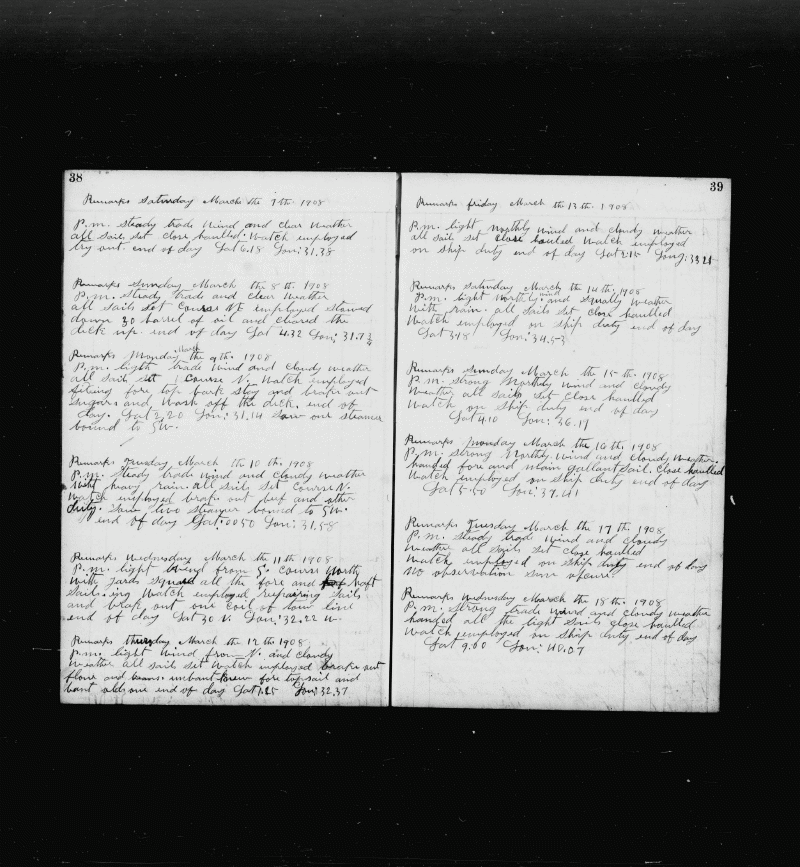 38
Remarks Saturday March the 7th. 1908
P.m. steady trade wind and clear weather
all sail set close haulled. Watch employed
try out end of day Lat 6.18 Lon: 31.38
Remarks Sunday March the 8th. 1908
P.m. steady trade and clear weather
all sails set Course NE employed stowed
down 30 barrel of oil and cleared the
deck up. end of day Lat 4.32 Lon: 31.7 3/4
Remarks Monday March the 9th. 1908
P.m. light trade wind and cloudy weather
all sail set Course N. Watch employed
fiting fore top back stay and brake out
sugar and wash off the dick. end of
day. Lat 2.20 Lon: 31.14 Saw one steamer
bound to SW.
Remarks Tuesday March the 10th. 1908
P.m. steady trade wind and cloudy weather
heavy rain. all sails set Course N.
Watch employed brak out beef and other
duty. Saw two steamer bound to SW.
end of day Lat. 00 50 Lon: 31.58
Remarks Wednesday March the 11th. 1908
P.m. light wind from S. course North
with yards squaed all the fore and haft
sail. ing Watch employed repairing sails
and brak out one coil of tow line
end of day Lat 30 N. Lon: 32.22 W.
Remarks thursday March the 12th 1908
P.m. light wind from N. and cloudy
weather all sail set watch employed brake out
flour and beans. unbant new fore topsail and
bant old one end of day Lat 1.25 Lon: 32.37
39
Remarks friday March the 13th. 1908
P.m. light northly wind and cloudy weather
all sail set close hauled Watch employed
on ship duty end of day Lat 2.15 Long: 33 21
Remarks Saturday March the 14th. 1908
P.m. light northly wind and squally weather
with rain. all sails set close haulled
Watch employed on ship duty end of day
Lat 3.18 Lon: 34.53
Remarks Sunday March the 15th. 1908
P.m. strong Northly wind and cloudy
weather all sails set close haulled
Watch on ship duty end of day
Lat 4.10 Lon: 36.19
Remarks Monday March the 16th. 1908
P.m. strong Northly wind and cloudy weather.
handed fore and main gallant sail. close haulled
Watch employed on ship duty end of day
Lat 5.50 Lon: 37.41
Remarks Tuesday March the 17th. 1908
P.m. steady trade wind and cloudy
weather all sails set close haulled
Watch employed on ship duty end of day
No observation
Remarks Wednesday March the 18th. 1908
P.m. strong trade wind and cloudy weather
handed all the light sails close haulled
Watch employed on ship duty end of day
Lat 9.00 Lon: 40.07